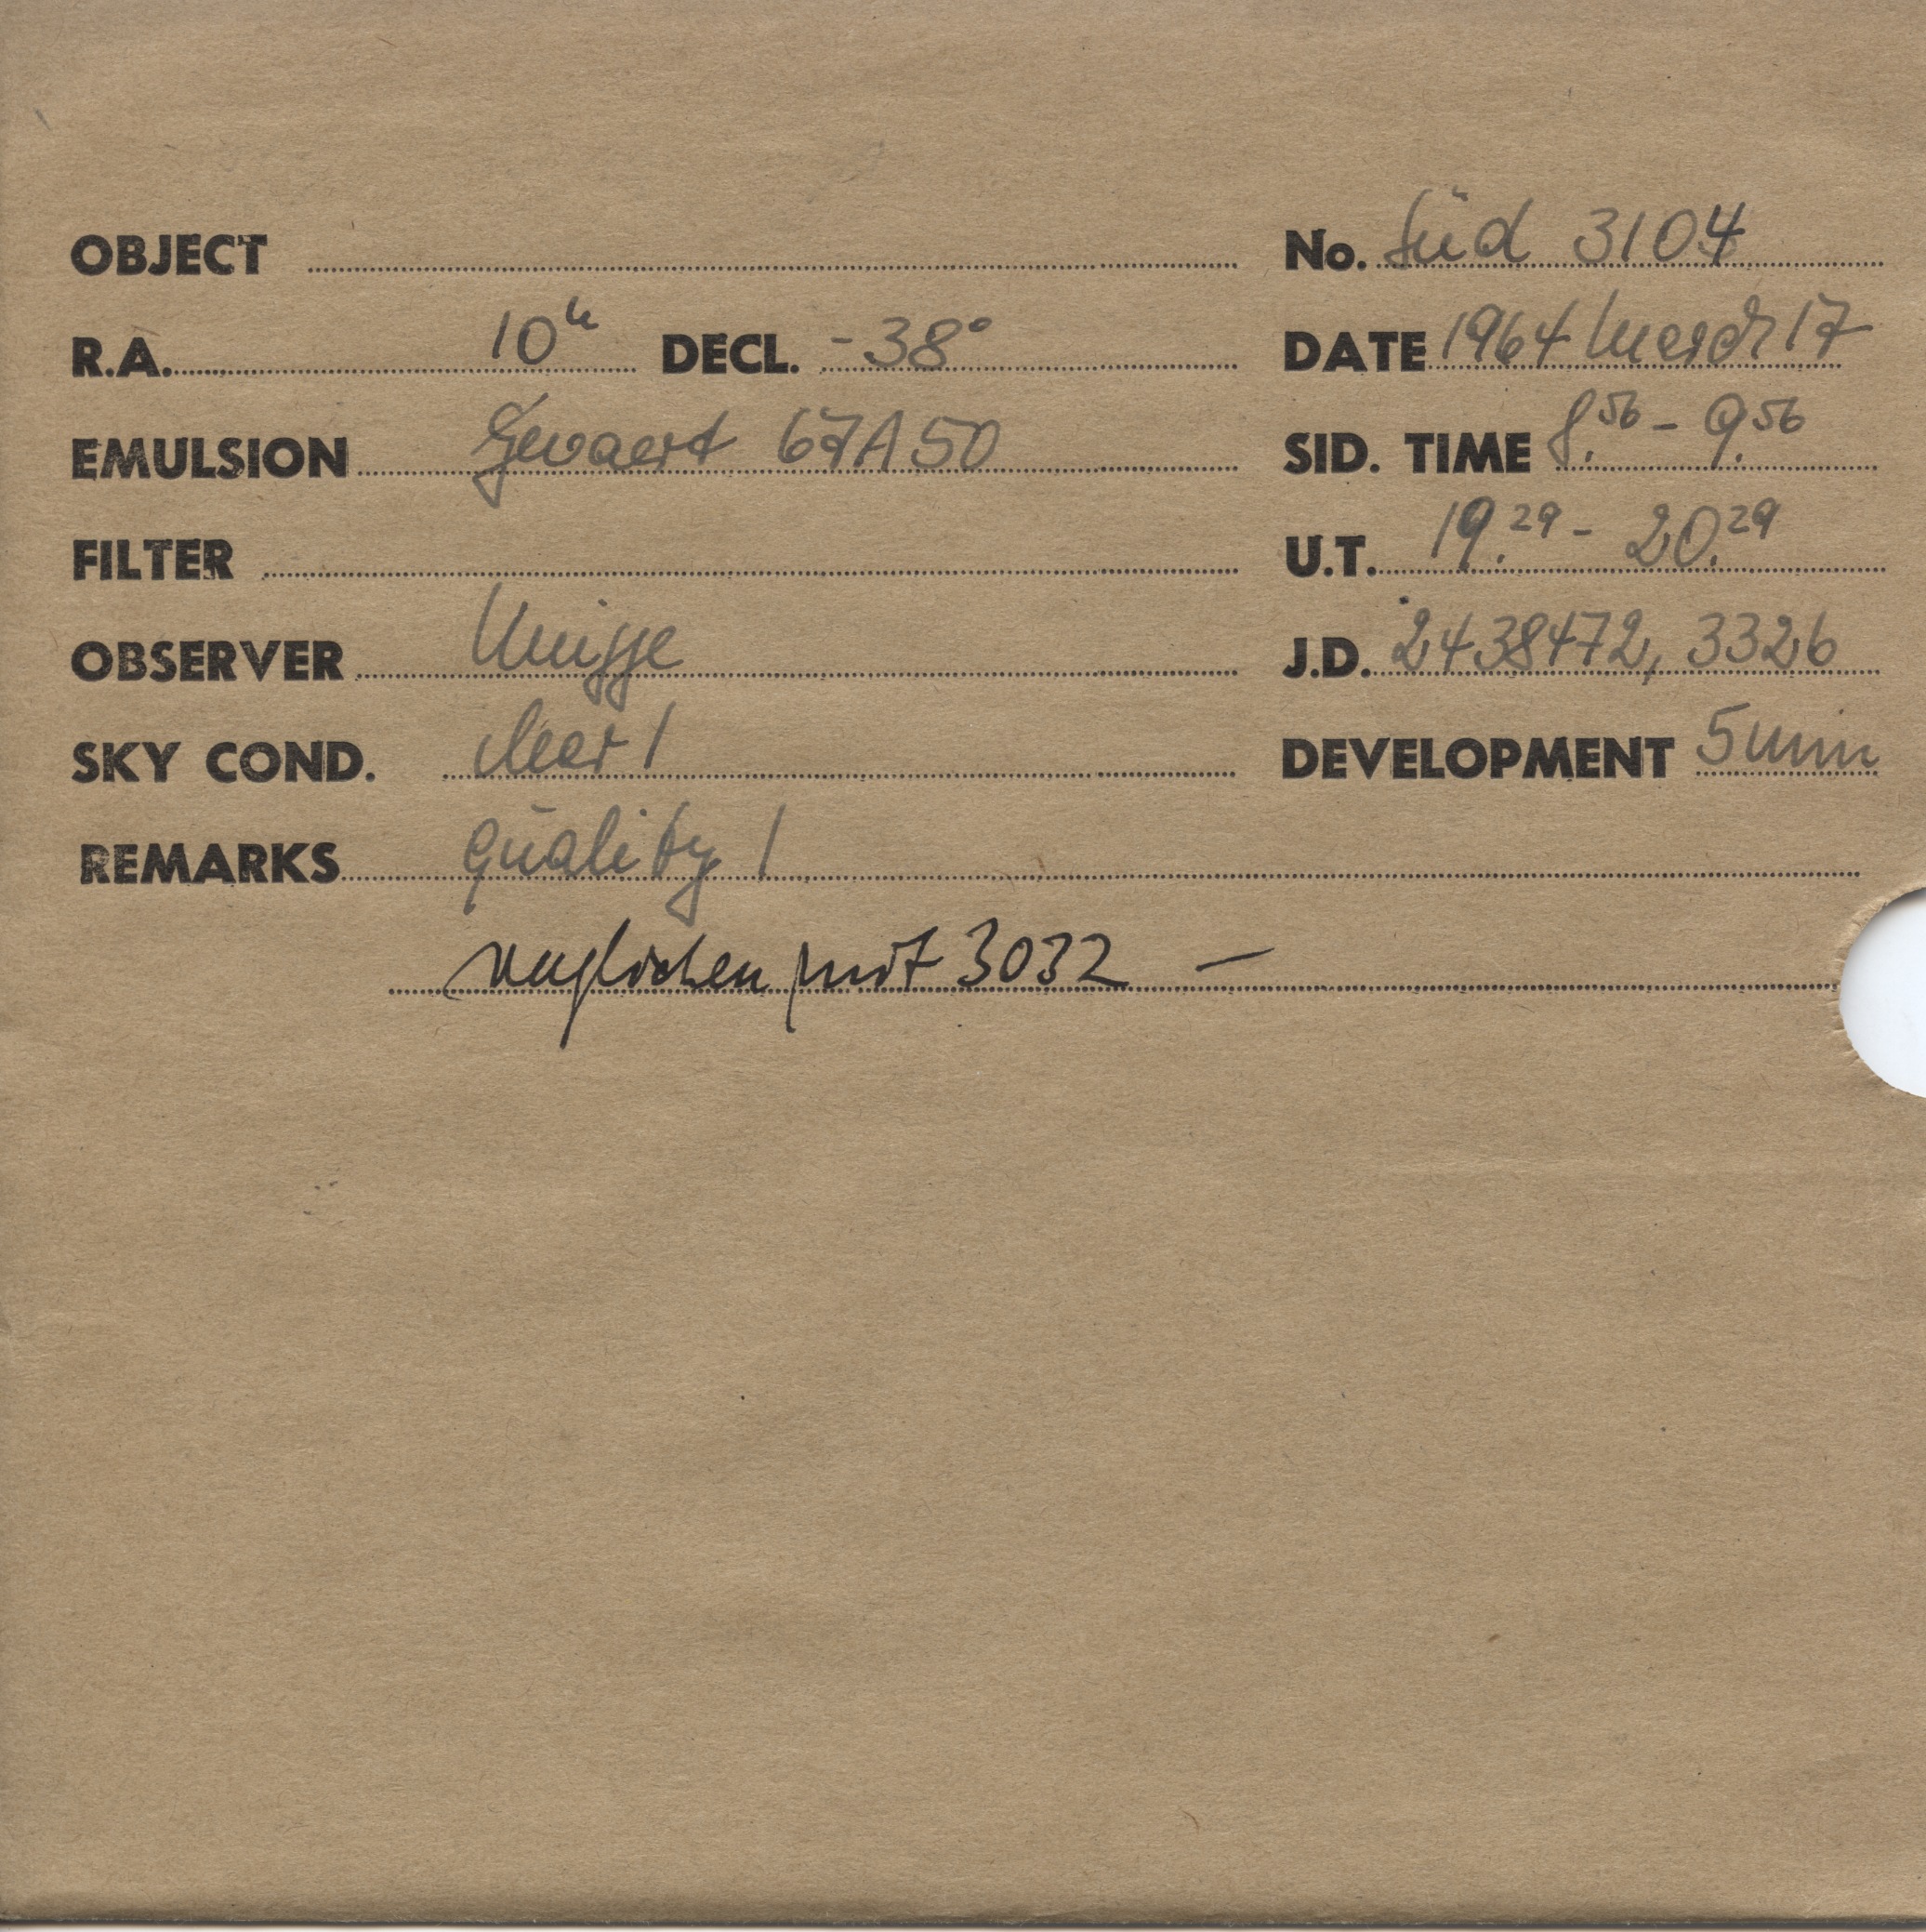 OBJECT No. Süd 3104
R.A. 10h DECL. -38° DATE 1964 March 17
EMULSION Gevaert 67A50 SID. TIME 8.56 - 9.56
FILTER U.T. 19.29 - 20.29
OBSERVER J.D. 2438472,3326
SKY COND. clear 1 DEVELOPMENT 5 min
REMARKS Quality 1
verglichen mit 3032 —